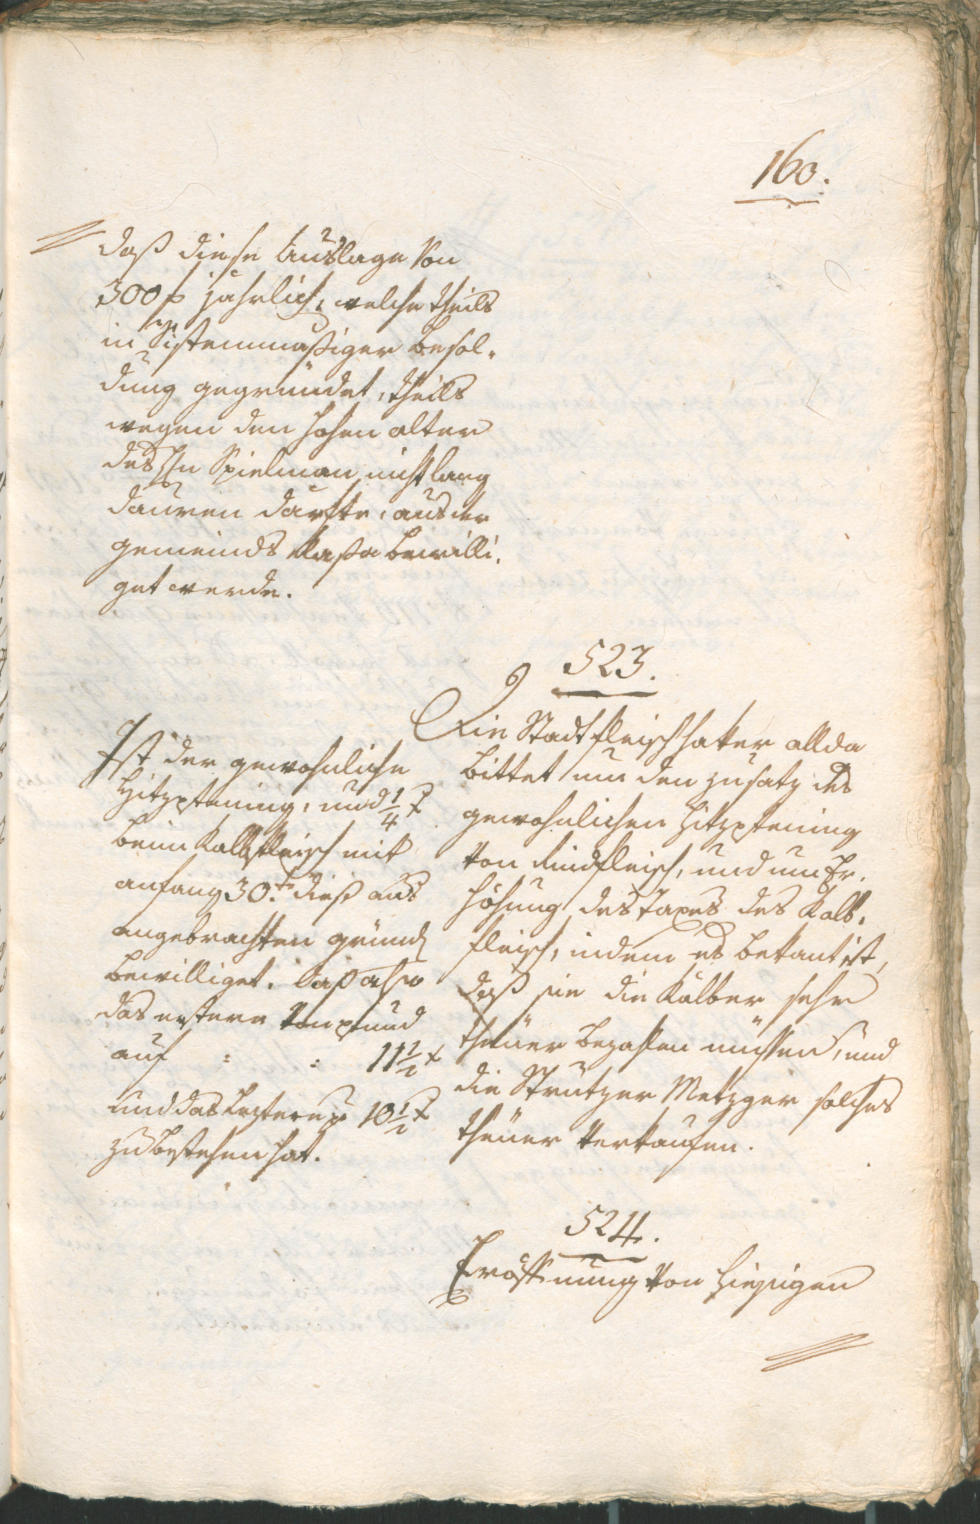 160.
daß diese Auslage von
300 f jährlich, welche theils
in sistemmaßiger Besol-
dung gegründet, theils
wegen den hohen alter
des Hn Spielman nicht lang
dauren darfte, aus der
gemeinds Kaßa bewilli-
get werde.
523.
Die Stadtfleischhaker allda
bittet um den zusatz des
gewohnlichen Hitzpfening
von Rindfleisch, und um Er-
höhung des taxes des Kalb-
fleisch, indem es bekant ist,
daß sie die Kälber sehr
theuer bezahlen müssen, und
die Metzger solches
theuer verkaufen.
Ist der gewohnliche
Hitzpfening, und 1/4 x
beim Kalbfleisch mit
anfang 30.ten dieß aus
angebrachten gründ
bewilliget. daß also
das erstere von pfund
auf : : 11 1/2 x
und das leztere auf 10 1/2 x
zu bestehen hat.
524.
Eröffnung von hiesigen